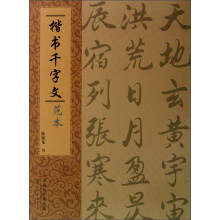 楷书千字文
范本
天地玄黄宇宙
洪荒日月盈昃
辰宿列張寒來